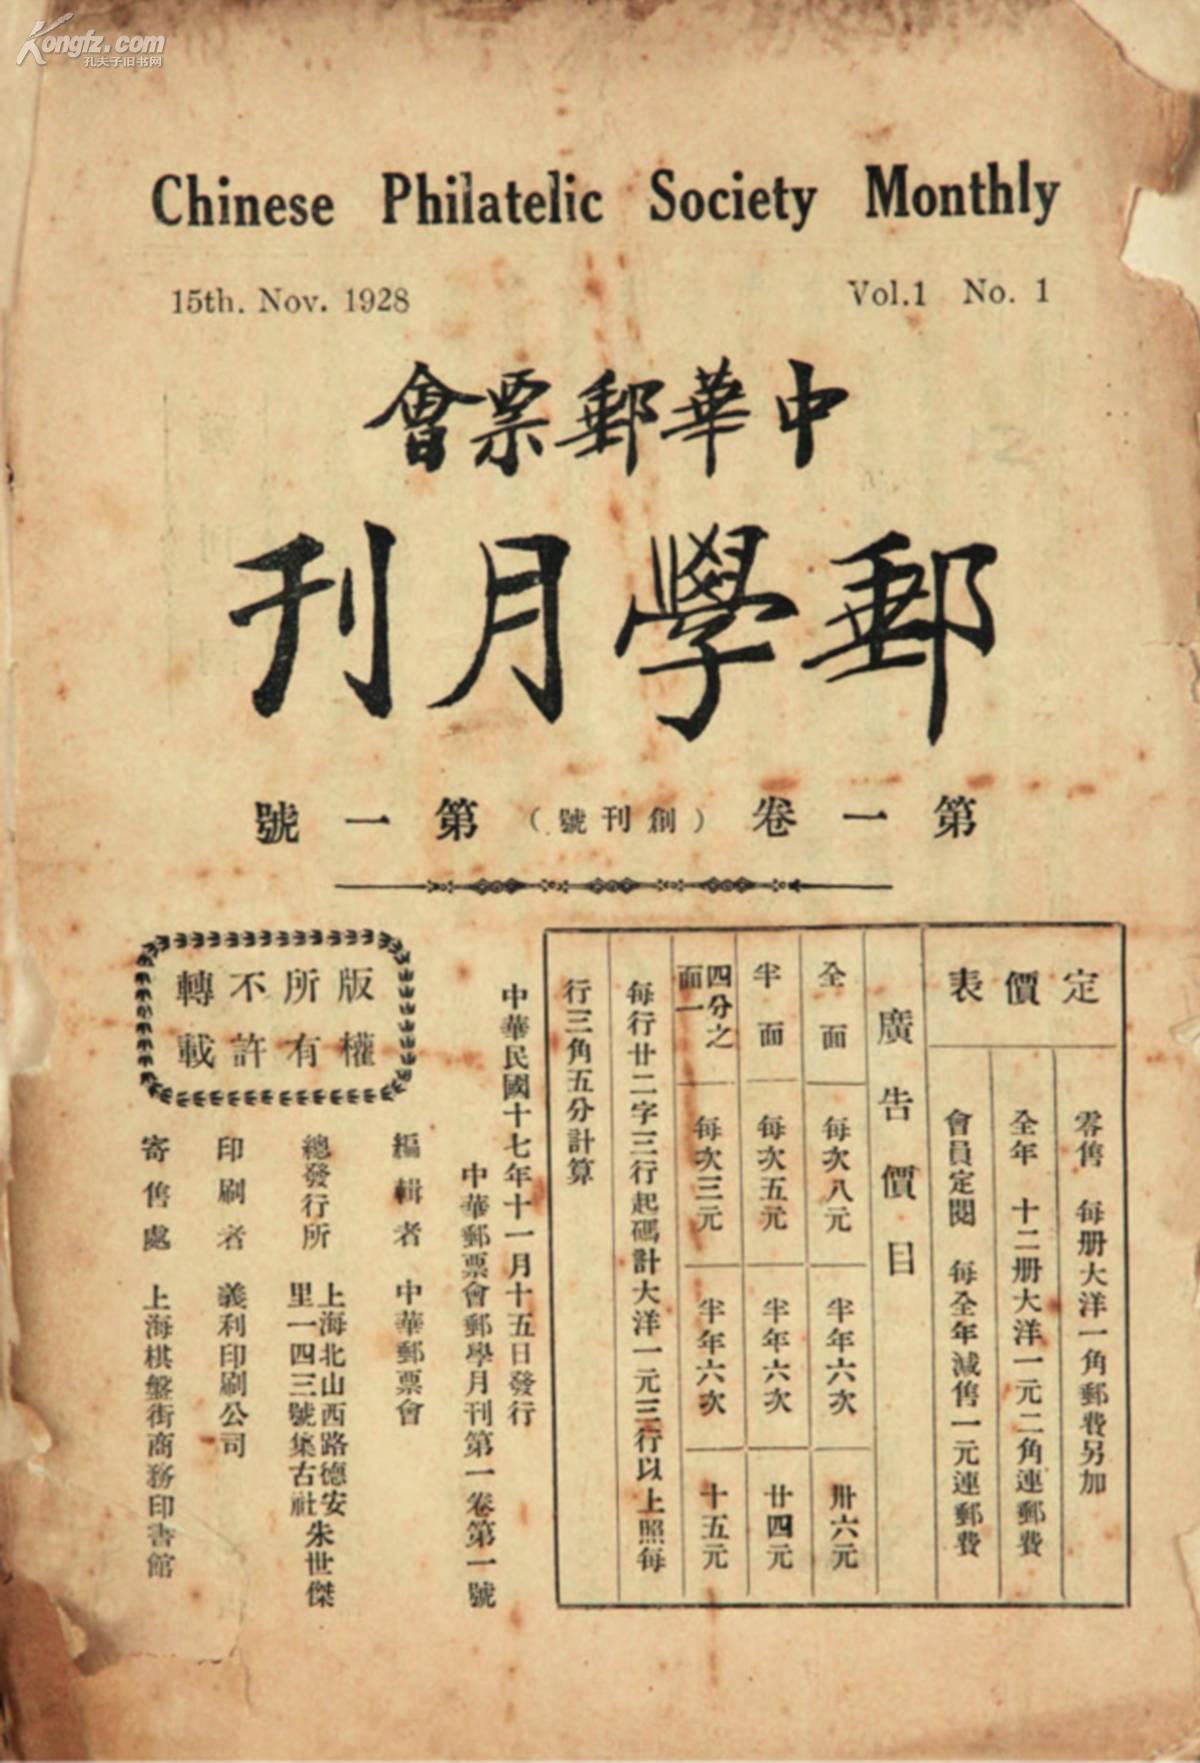 Kongfz.com
孔夫子旧书网
Chinese Philatelic Society Monthly
15th. Nov. 1928
Vol.1 No. 1
中華郵票會
郵學月刊
第一卷（創刊號）第一號
定價表
零售 每册大洋一角郵費另加
全年 十二册大洋一元二角連郵費
會員定閱 每全年減售一元連郵費
廣告價目
全面 每次八元 半年六次 卅六元
半面 每次五元 半年六次 廿四元
四分之一面 每次三元 半年六次 十五元
每行廿二字三行起碼計大洋一元三行以上照每
行三角五分計算
中華民國十七年十一月十五日發行
中華郵票會郵學月刊第一卷第一號
版權所有不許轉載
編輯者 中華郵票會
總發行所 上海北山西路德安
里一四三號集古社朱世傑
印刷者 義利印刷公司
寄售處 上海棋盤街商務印書館